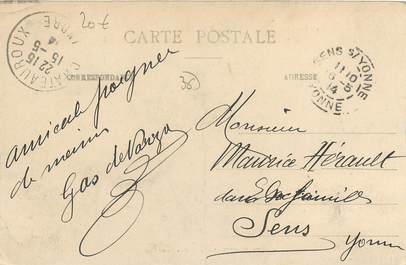 20€
CARTE POSTALE
CHATEAUROUX
22 15
15 - 5
14
INDRE
SENS S/YONNE
11 10
6 - 5
14
YONNE
CORRESPONDANCE
36
ADRESSE
amical poignée
de mains
Gas de
Monsieur
Maurice Hérault
dans sa famille
Sens
Yonne